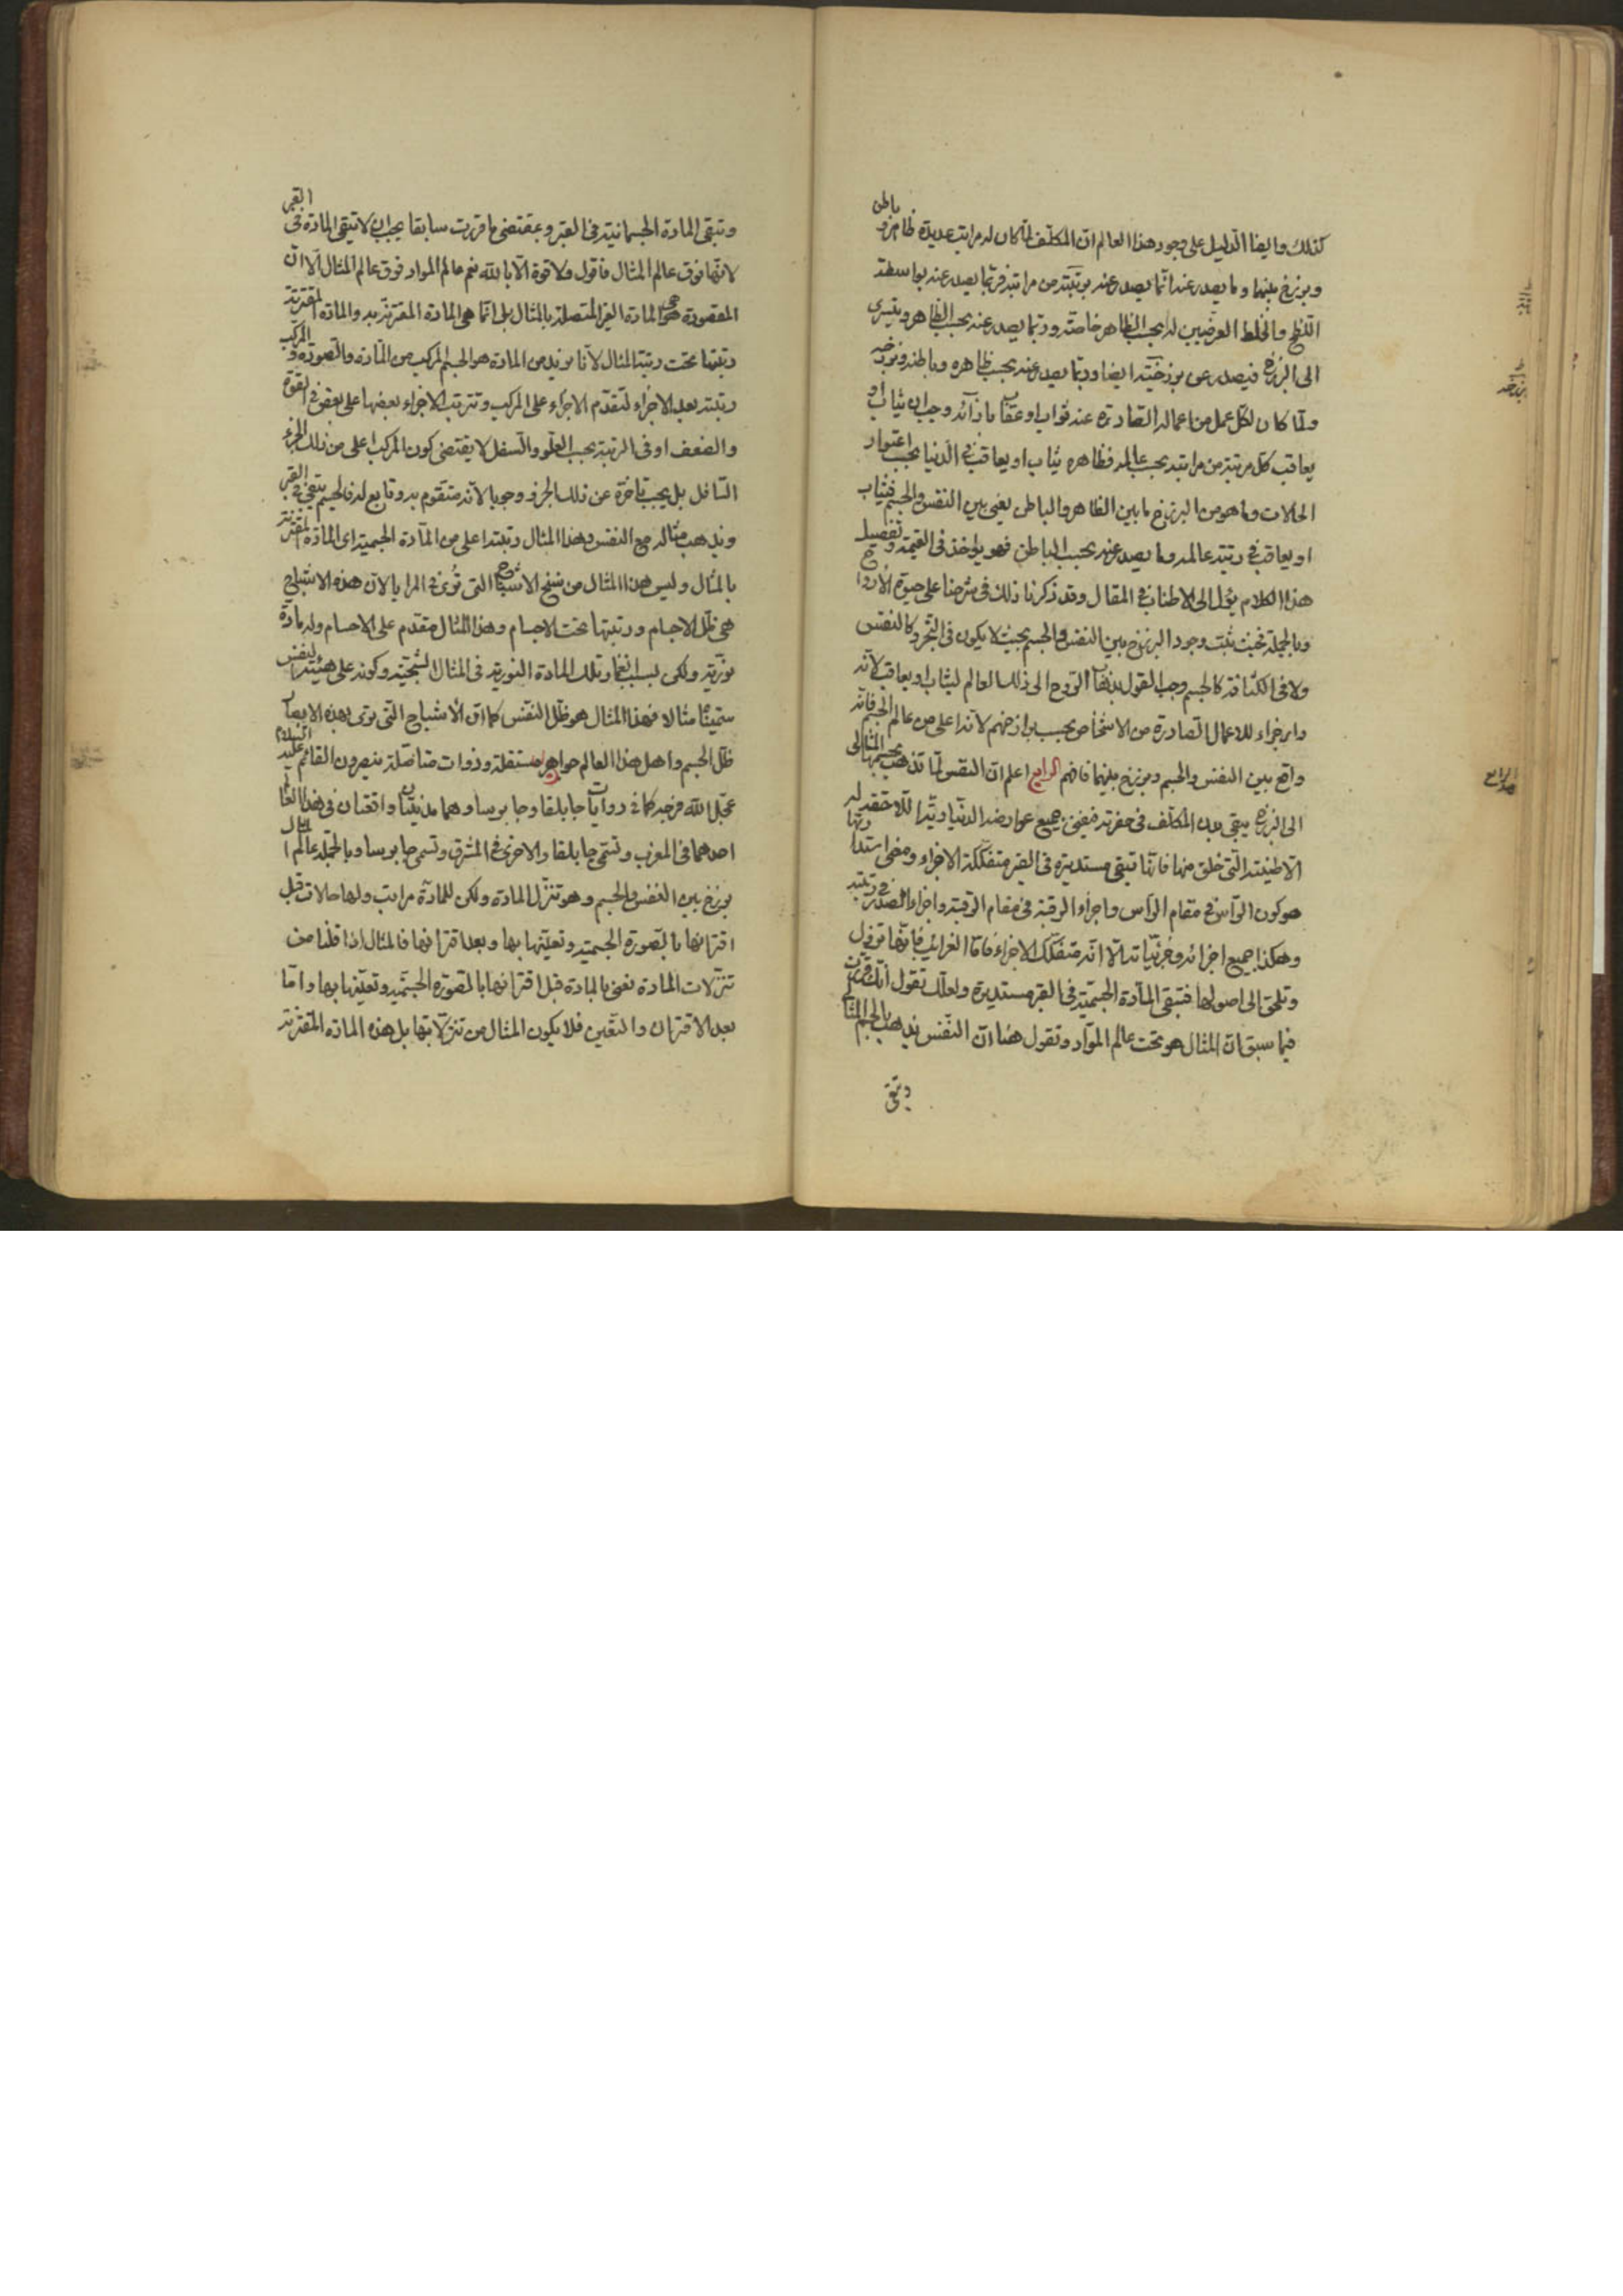 كذلك وايضا الدليل على وجود هذا العالم ان المكلف لما كان له مراتب عديدة ظاهر و باطن
وبرزخ بينهما وما يصدر عنه انما يصدر عنه بمرتبته من مراتبه فربما يصدر عنه بواسطة
اللطخ والخلط العرضيين له بحسب الظاهر خاصة وربما يصدر عنه بحسب الظاهر ويسرى
الى البرزخ فيصدر عن برزخيته ايضا وربما يصدر عنه بحسب ظاهره وباطنه وبرزخه
ولما كان لكل عمل من اعماله الصادرة عنه ثواب او عقاب بازائه وجب ان يثاب او
يعاقب كل مرتبة من مراتبه بحسب عالمه فظاهره يثاب او يعاقب في الدنيا بحسب اعتوار
الحالات وما هو من البرزخ ما بين الظاهر والباطن يعنى بين النفس والجسم فيثاب
او يعاقب في رتبة عالمه وما يصدر عنه بحسب الباطن فهو يؤاخذ في القيمة وتفصيل
هذا الكلام يؤل الى الاطناب في المقال وقد ذكرنا ذلك في شرحنا على حيوة الارواح
وبالجملة فحيث ثبت وجود البرزخ بين النفس والجسم بحيث لا يكون في التجرد كالنفس
ولا في الكثافة كالجسم وجب القول بذهاب الروح الى ذلك العالم ليثاب او يعاقب لانه
دار جزاء للاعمال الصادرة من الاشخاص بحسب برازخهم لانه اعلى من عالم الجسم فانه
واقع بين النفس والجسم وبرزخ بينهما فافهم الرابع اعلم ان النفس لما تذهب بجسمها المثالى
الى البرزخ يبقى بدن المكلف في حفرته فيفنى جميع عوارضه الدنياوية اللاحقة له
الا طينته التى خلق منها فانها تبقى مستديرة في القبر متفككة الاجزاء ومعنى استدارتها
هو كون الرأس في مقام الرأس واجزاء الرقبة في مقام الرقبة واجزاء الصدر في رتبته
وهكذا جميع اجزائه وجزئياته الا انه متفكك الاجزاء فاما الغرائب فانها تزول
وتلحق الى اصولها فتبقى المادة الجسمية في القبر مستديرة ولعلك تقول انك قررت
فيما سبق ان المثال هو تحت عالم المواد وتقول هنا ان النفس يذهب بالجسم المثالى
وتبقى
الرابع
وتبقى المادة الجسمانية في القبر وبمقتضى ما قررت سابقا يجب ان لا تبقى المادة في القبر
لانها فوق عالم المثال فاقول ولا قوة الا بالله نعم عالم المواد فوق عالم المثال الا ان
المقصودة هى المادة الغير المتصلة بالمثال بل انما هى المادة المقترنة به والمادة المقترنة
رتبتها تحت رتبة المثال لانا نريد من المادة هو الجسم المركب من المادة والصورة والمركب
رتبته بعد الاجزاء لتقدم الاجزاء على المركب وترتب الاجزاء بعضها على بعض في القوة
والضعف او في الرتبة بحسب العلو والسفل لا يقتضى كون المركب اعلى من ذلك الجزء
السافل بل يجب تاخره عن ذلك الجزء وجوبا لانه متقوم به وتابع له فالجسم يبقى في القبر
ويذهب مثاله مع النفس وهذا المثال رتبته اعلى من المادة الجسمية اى المادة المقترنة
بالمثال وليس هذا المثال من سنخ الاشباح التى تُرى في المرايا لان هذه الاشباح
هى ظل الاجسام ورتبتها تحت الاجسام وهذا المثال مقدم على الاجسام وله مادة
نورية ولكن لسبب انغمار تلك المادة النورية في المثال الشبحية وكونه على هيئة النفس
سميناه مثالا فهذا المثال هو ظل النفس كما ان الاشباح التى ترى بهذه الابصار
ظل الجسم واهل هذا العالم جواهر مستقلة وذوات متاصلة ينصرون القائم عليه السلام
عجل الله فرجه كما في روايات جابلقا وجابرسا وهما مدينتان واقعتان في هذا العالم
احدهما في المغرب وتسمى جابلقا والاخرى في المشرق وتسمى جابرسا وبالجملة عالم المثال
برزخ بين النفس والجسم وهو تنزل المادة ولكن للمادة مراتب ولها حالات قبل
اقترانها بالصورة الجسمية وتعينها بها وبعد اقترانها فالمثال اذا قلنا من
تنزلات المادة نعنى بالمادة قبل اقترانها بالصورة الجسمية وتعينها بها واما
بعد الاقتران والتعين فلا يكون المثال من تنزلاتها بل هذه المادة المقترنة